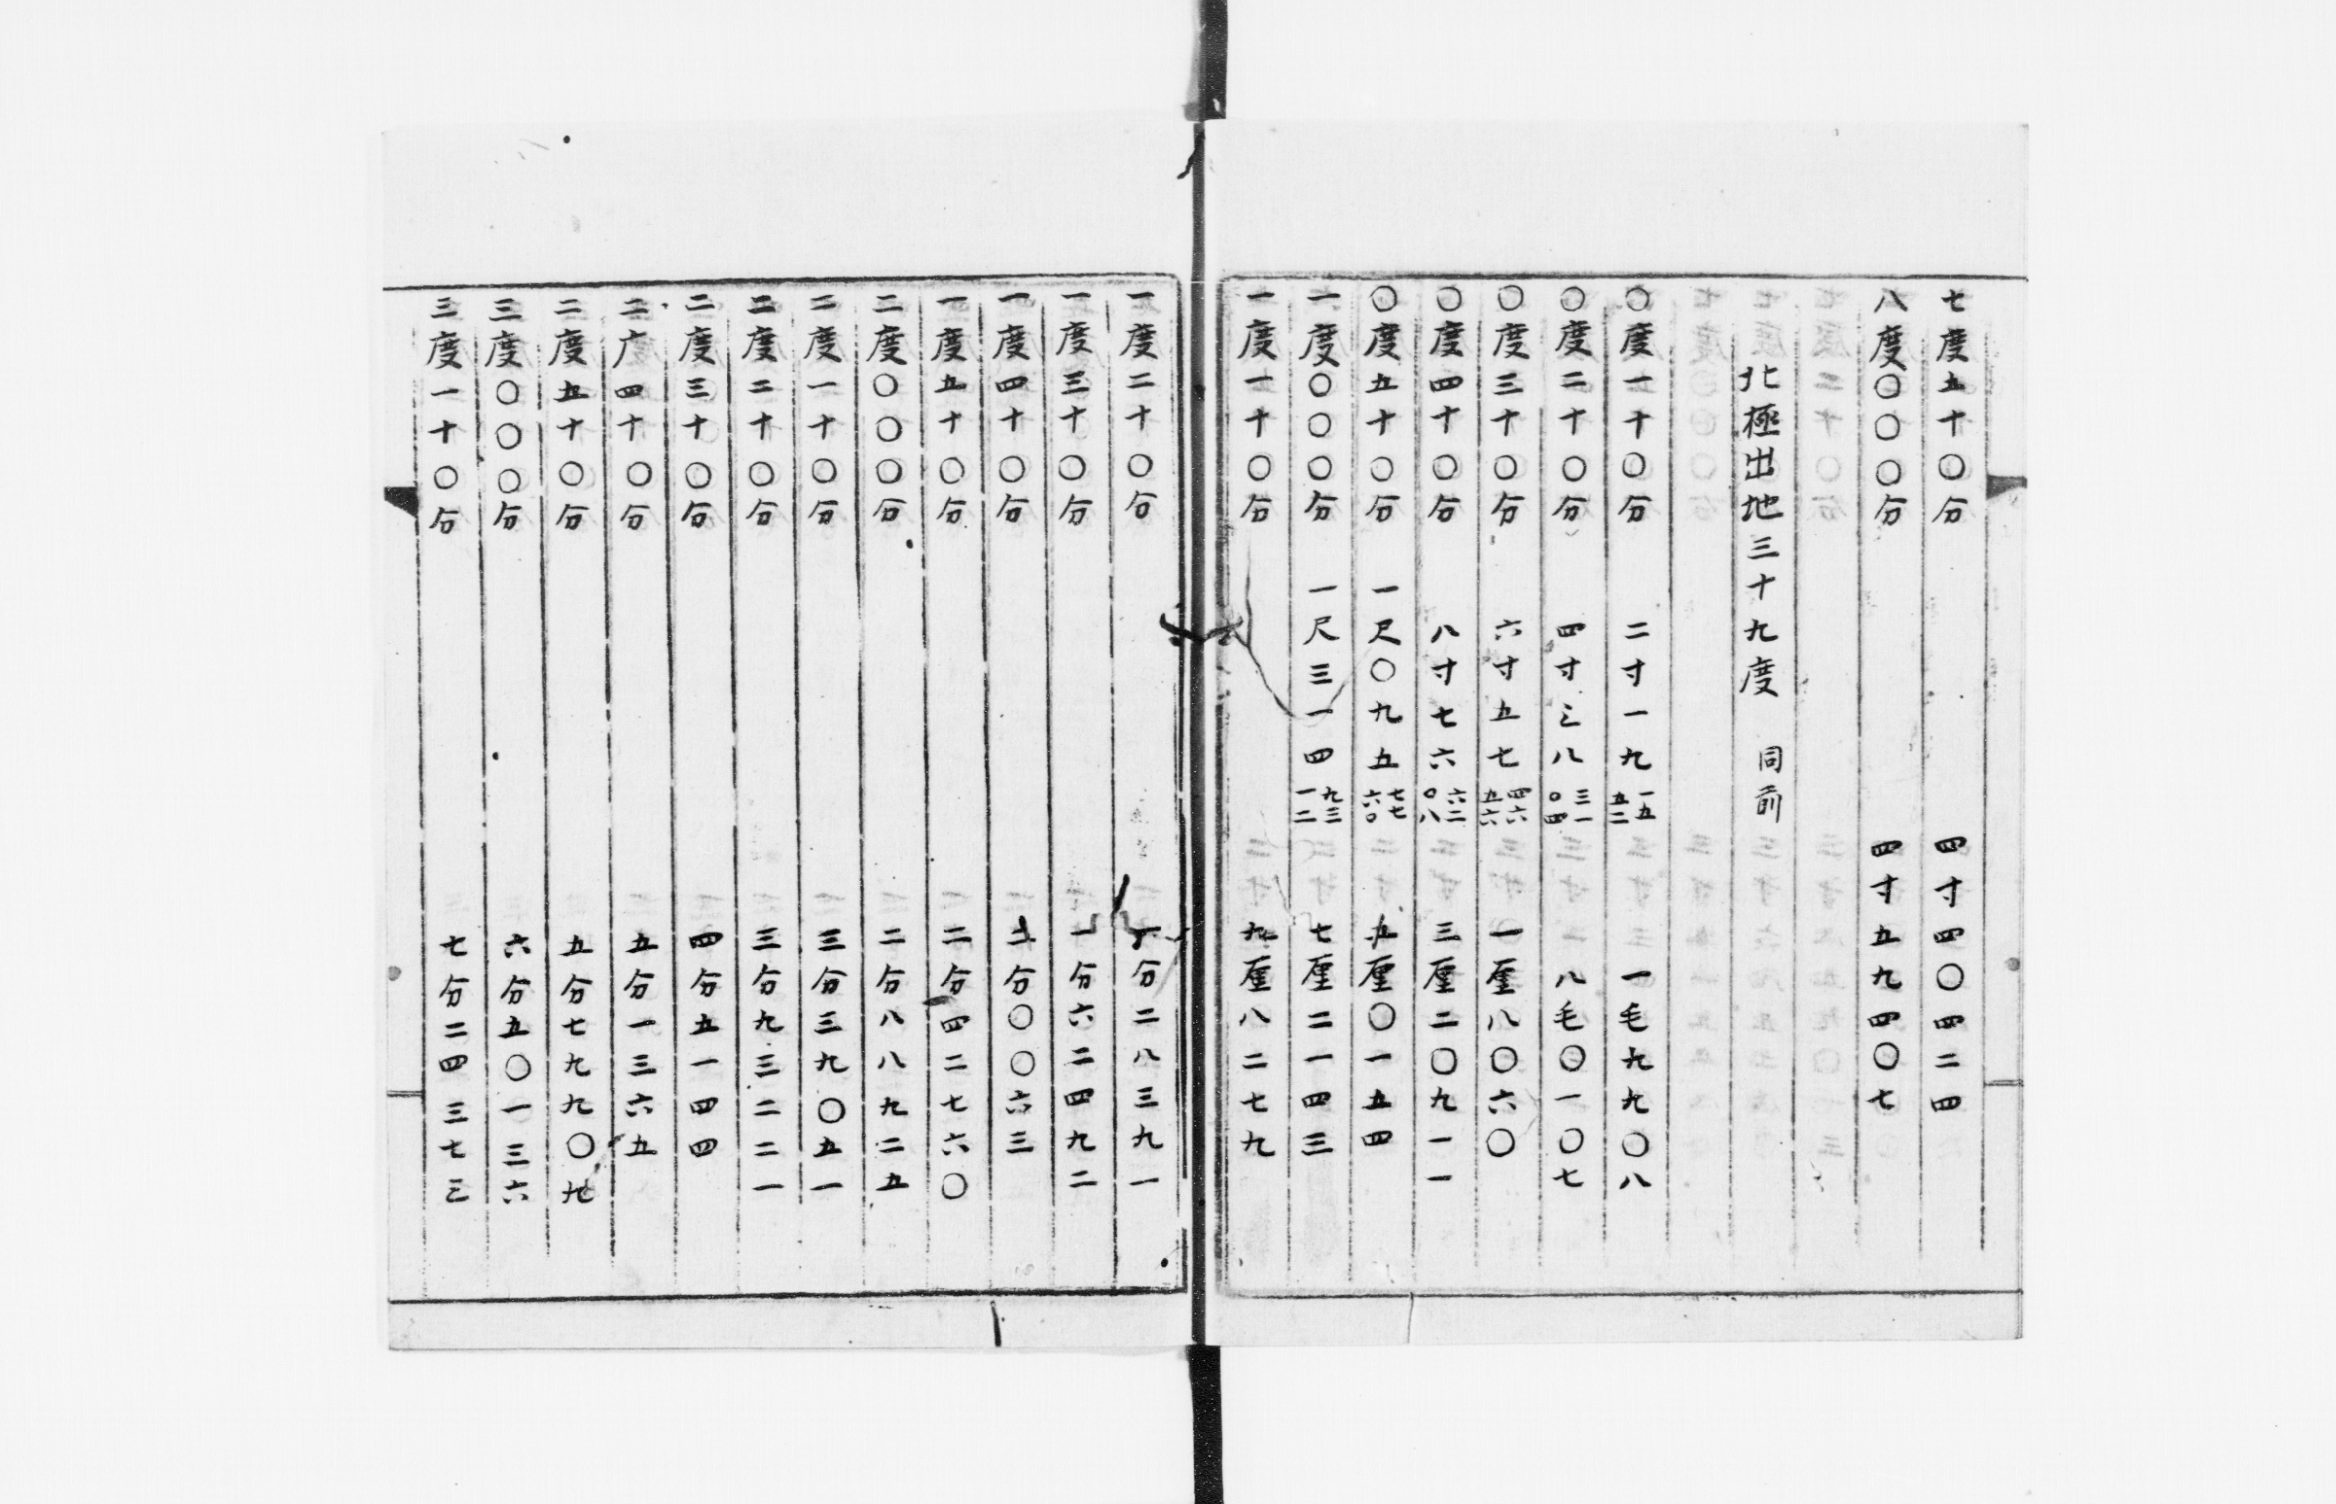 七度五十〇分 四寸四〇四二四
八度〇〇〇分 四寸五九四〇七
北極出地三十九度 同前
〇度一十〇分 二寸一九一五五二 一毛九九〇八
〇度二十〇分 四寸三八三一〇四 八毛〇一〇七
〇度三十〇分 六寸五七四六五六 一厘八〇六〇
〇度四十〇分 八寸七六六二〇八 三厘二〇九一一
〇度五十〇分 一尺〇九五七七六〇 五厘〇一五四
一度〇〇〇分 一尺三一四九三一二 七厘二一四三
一度一十〇分 九厘八二七九
一度二十〇分 一分二八三九一
一度三十〇分 一分六二四九二
一度四十〇分 二分〇〇六三
一度五十〇分 二分四二七六〇
二度〇〇〇分 二分八八九二五
二度一十〇分 三分三九〇五一
二度二十〇分 三分九三二二一
二度三十〇分 四分五一四四
二广四十〇分 五分一三六五
二度五十〇分 五分七九九〇
三度〇〇〇分 六分五〇一三六
三度一十〇分 七分二四三七三